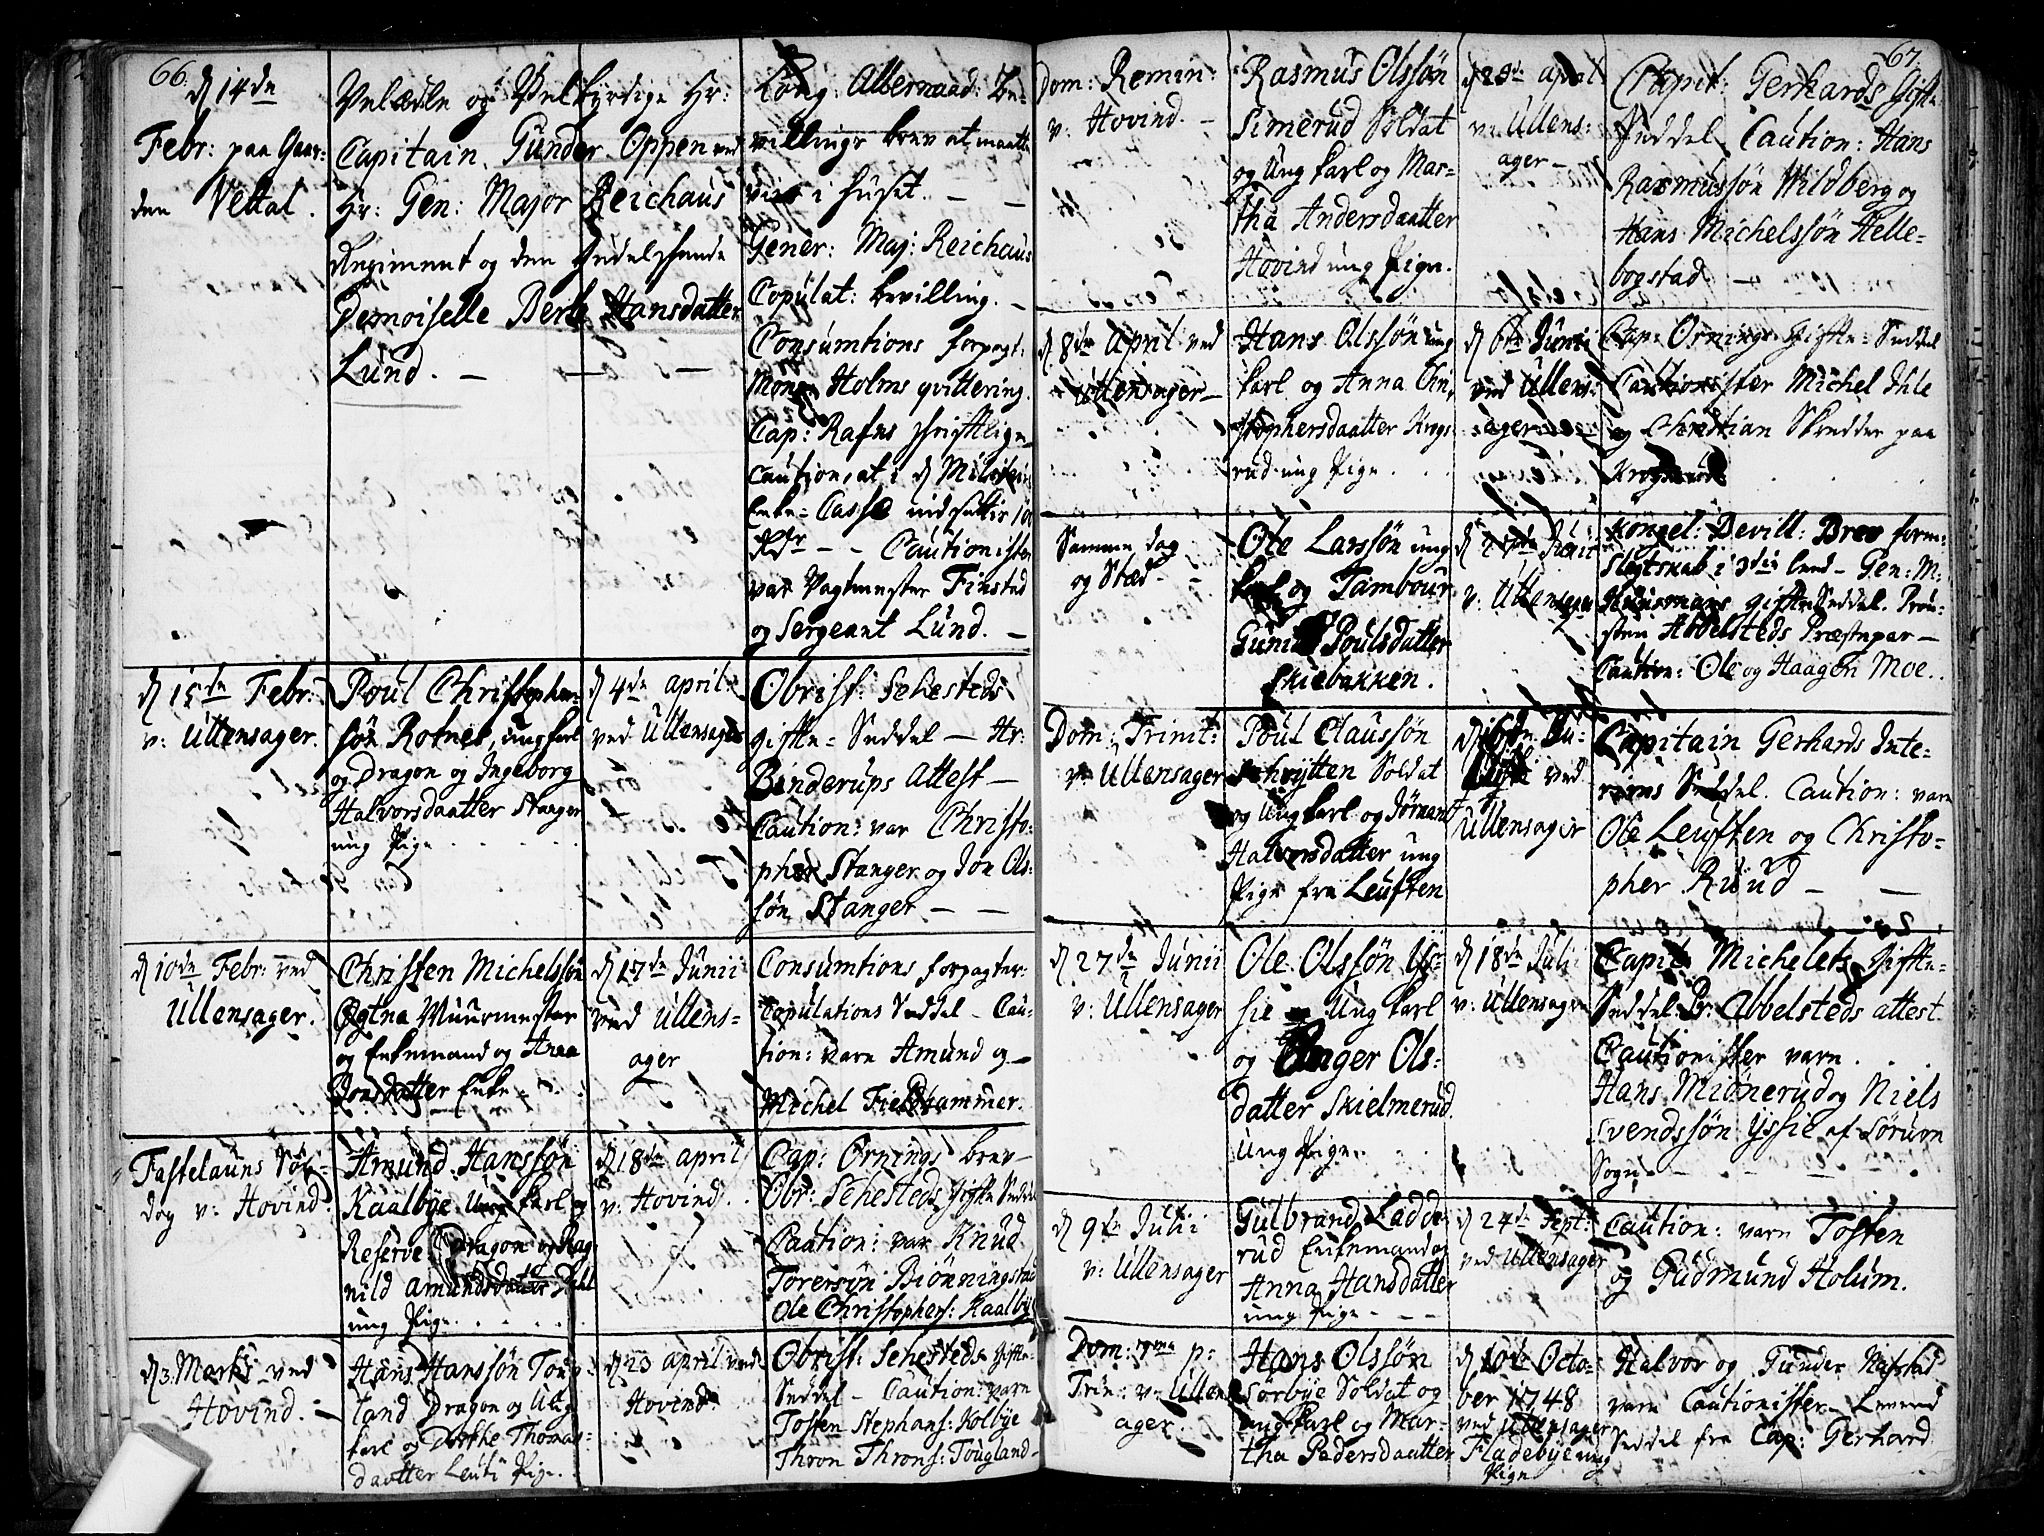 66.
d 14de
Febr: paa Gaar=
den Vettal.
Velædle og Velbyrdige Hr:
Capitain Gunder Oppen ved
Hr: Gen: Major Reichaus
Regiment og den Dydelskende
Demoiselle Berte Hansdatter
Lund. — — —
Kong: Allernaad: Be-
villings brev at maatte
vies i huset. — —
Gener: Maj: Reichaus
Copulat: bevilling. —
Consumtions forpagt:
Mons: Holms qvittering.
Cap: Rafns skriftlige
Caution, at i d Militaire
Enke=Casse indsættis 100
Rdr — — Cautionister
var Vagtmester Finstad
og Sergeant Lund. —
d 15de Febr:
v: Ullensager.
Poul Christophers
søn Rotnes, ung karl
og Dragon og Ingeborg
Halvorsdaatter Stanger
ung Pige . . . . .
d 4de april:
ved Ullensager
Obrist: Sehesteds
gifte=Seddel — Hr:
Binderups Attest —
Caution: var Christo-
pher Stanger og Jon Ols-
søn Stanger — —
d 10de Febr: ved
Ullensager.
Christen Michelssøn
Muurmester
og Enkemand og Anna
Jonsdatter Enke — .
d 17de Junii
ved Ullens=
ager
Consumtions forpagter:
Copulations Seddel — Cau-
tion: vare Amund og
Michel Fieldhammer.
Fastelauns Søn-
dag v: Hovind.
Amund Hanssøn
Kaalbye Ung karl og
Reserve Dragon og Rag-
nild Amundsdatter
ung Pige. . . . .
d 18de april
v: Hovind.
Cap: Ornings brev
Obr: Sehesteds gifte Seddel
Caution: var Knud
Torersøn Biønningstad
Ole Christophers: Kaalbye
d 3. Martii ved
Hovind. —
Hans Hanssøn Toug-
land Dragon og Ung
karl og Dorthe Thomas-
daatter Leuti Pige.
d 23 april ved
Hovind
Obrist: Sehesteds gifte-
Seddel — Caution: vare
Tosten Stephans: Kolbye
Thron Throns: Tougland —
67.
Dom: Remin:
v: Hovind. —
Rasmus Olssøn
Simerud Soldat
og Ung karl og Mar=
tha Andersdaatter
Hovind ung Pige.
d 23de april
v: Ullens:
ager —
Capit: Gerhards gifte
Seddel. Caution: Hans
Rasmussøn Wildberg og
Hans Michelssøn Helle-
bogstad —
d 8de April ved
Ullensager —
Hans Olssøn ung
karl og Anna Chri-
stophersdaatter Krogs
rud ung Pige . .
d 6te Junii
ved Ullens:
ager
Cap: Ornings gifte=Seddel
Cautionister Michel Ihle
og Christian Skredder paa
Krogsrud
Samme dag
og Stæd — —
Ole Larssøn ung
karl og Tambour
Poulsdatter
Skiebakken.
d 27de
v: Ullensager
Kongel: Bevill: Brev form:
Slegtskab i 3die leed — Gen: M:
Huusmans gifte Seddel. Prou-
sten Abbelsteds Præstepar —
Caution: Ole og Haagen Moe.
Dom: Trinit:
v: Ullensager
Poul Claussøn
Schrytten Soldat
og Ung karl og
Halvorsdatter ung
Pige fra Leuften
ved
Ullensager
Capitain Gerhards Inte-
rims Seddel. Caution: vare
Ole Leuften og Christo-
pher Ruud — —
d 27de Junii
v: Ullensager
Ole Olssøn Ys-
sie Ung karl
og Anger Ols-
datter Skielmerud
Ung Pige.
d 18de Juli
v: Ullensager
Capit Michelets gifte-
Seddel. Pr: Abbelsteds attest
Cautionister vare . .
Hans Miønerud og Niels
Svendssøn Yssie af Sørum
Sogn. — . — — .
d 9de Julii
v: Ullensager
Gulbrand Ladde-
rud Enkemand og
Anna Hansdatter
ung Pige — — —
d 24de Sept:
ved Ullensager
Caution: vare Tosten
og Gudmund Holum.
Dom: 7ma p:
Trin: v: Ullens
ager.
Hans Olssøn
Sørbye Soldat og
ung karl og Mar-
tha Pedersdaatter
Fladebye ung
Pige
d 10de Octo-
ber 1748
ved Ullensager
Halvor og Gunder
vare Cautionister —
Seddel fra Cap: Gerhard